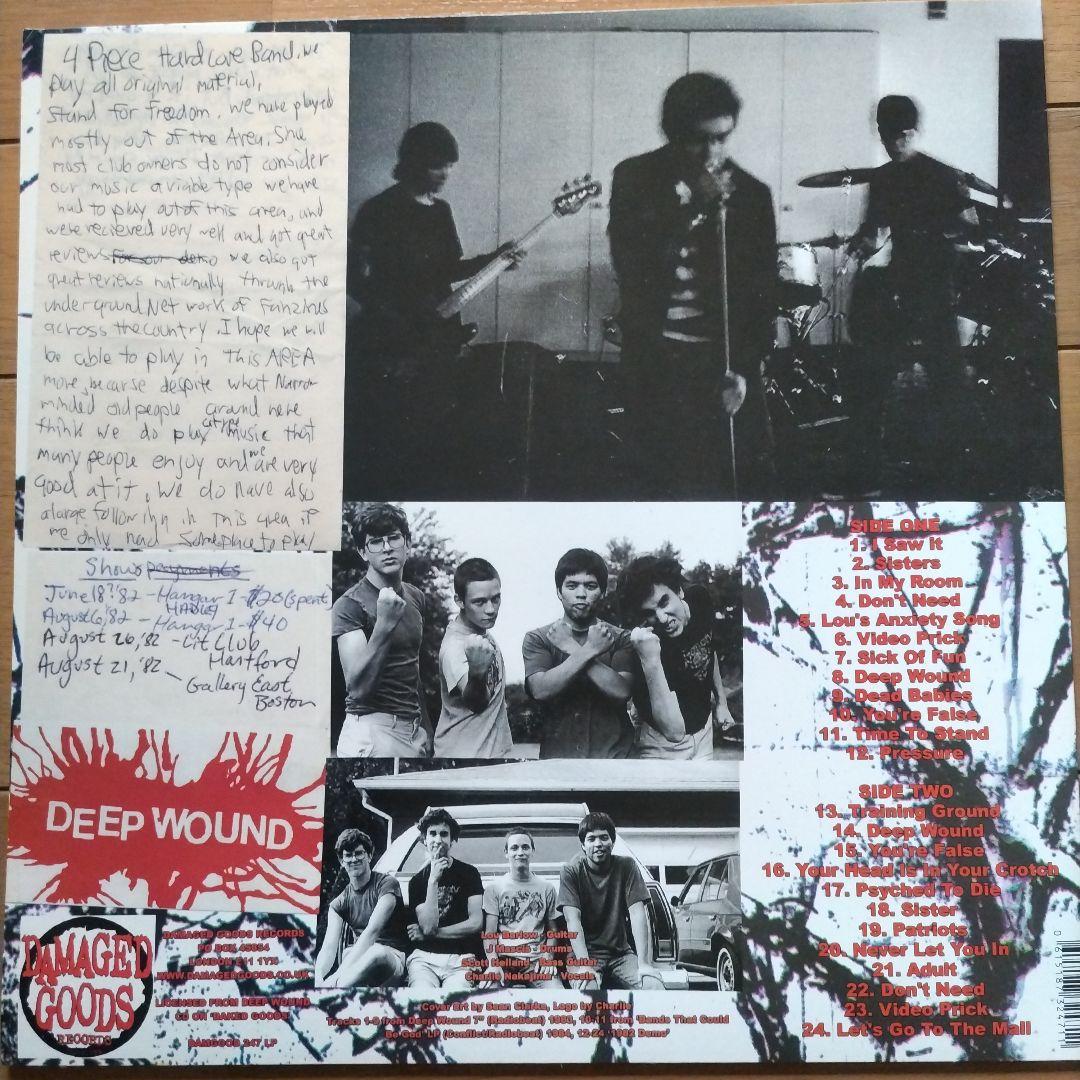 4 Piece Hardcore Band. we
play all original material,
stand for freedom. we have played
mostly out of the Area. Since
most club owners do not consider
our music a viable type we have
had to play out of this area, and
were recieved very well and got great
reviews for our demo we also got
great reviews nationally through the
underground Net work of Fanzines
across the country. I hope we will
be able to play in this AREA
more, because despite what Narrow
minded old people around here
think we do play music that
many people enjoy and we are very
good at it. We do have also
a large following in this area if
we only had someplace to play
Shows
June 18?'82 - Hangar 1 - $20 (spent)
HADLEY
August 6,'82 - Hangar 1 - $40
August 26,'82 - Lit Club
Hartford
August 21,'82 - Gallery East
Boston
DEEP WOUND
DAMAGED
GOODS
RECORDS
DAMAGED GOODS RECORDS
PO BOX 45854
LONDON E11 1YX
WWW.DAMAGEDGOODS.CO.UK
LICENSED FROM DEEP WOUND
CD ON 'BAKED GOODS'
DAMGOOD 247 LP
Lou Barlow - Guitar
J Mascis - Drums
Scott Helland - Bass Guitar
Charlie Nakajima - Vocals
Cover Art by Sean Clarke, Logo by Charlie
Tracks 1-9 from Deep Wound 7" (Radiobeat) 1983, 10-11 from 'Bands That Could
Be God' LP (Conflict/Radiobeat) 1984, 12-24 '1982 Demo'
SIDE ONE
1. I Saw It
2. Sisters
3. In My Room
4. Don't Need
5. Lou's Anxiety Song
6. Video Prick
7. Sick Of Fun
8. Deep Wound
9. Dead Babies
10. You're False
11. Time To Stand
12. Pressure
SIDE TWO
13. Training Ground
14. Deep Wound
15. You're False
16. Your Head Is In Your Crotch
17. Psyched To Die
18. Sister
19. Patriots
20. Never Let You In
21. Adult
22. Don't Need
23. Video Prick
24. Let's Go To The Mall